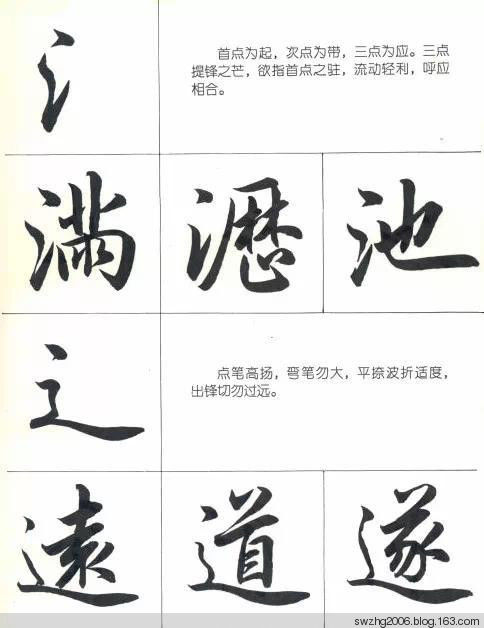 氵
首点为起，次点为带，三点为应。三点
提锋之芒，欲指首点之驻，流动轻利，呼应
相合。
滿 瀝 池
辶
点笔高扬，弯笔勿大，平捺波折适度，
出锋切勿过远。
遠 道 遂
swzhg2006.blog.163.com